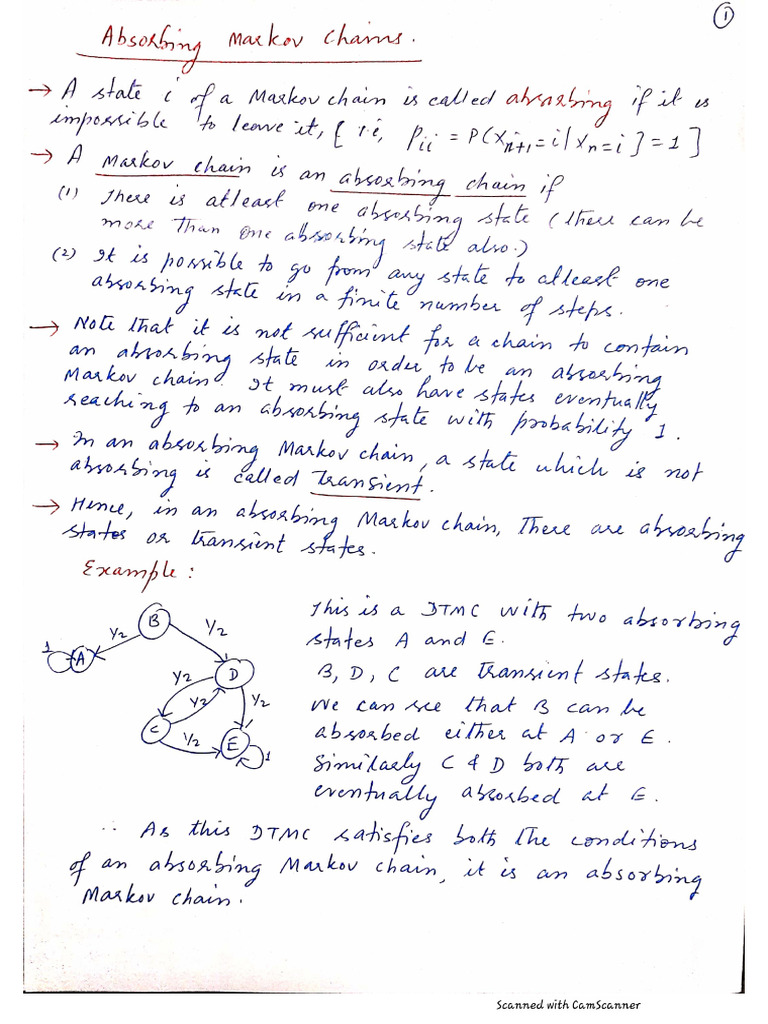 ①
Absorbing Markov Chains.
→ A state i of a Markov chain is called absorbing if it is
impossible to leave it, [i.e, Pii = P(Xn+1=i | Xn=i] = 1]
→ A Markov chain is an absorbing chain if
(1) There is atleast one absorbing state (there can be
more than one absorbing state also.)
(2) It is possible to go from any state to atleast one
absorbing state in a finite number of steps.
→ Note that it is not sufficient for a chain to contain
an absorbing state in order to be an absorbing
Markov chain. It must also have states eventually
reaching to an absorbing state with probability 1.
→ In an absorbing Markov chain, a state which is not
absorbing is called Transient.
→ Hence, in an absorbing Markov chain, There are absorbing
states or transient states.
Example:
B
1/2
1/2
1
A
D
1/2
1/2
1/2
C
1/2
E
1
This is a DTMC with two absorbing
states A and E.
B, D, C are transient states.
We can see that B can be
absorbed either at A or E.
Similarly C & D both are
eventually absorbed at E.
∴ As this DTMC satisfies both the conditions
of an absorbing Markov chain, it is an absorbing
Markov chain.
Scanned with CamScanner